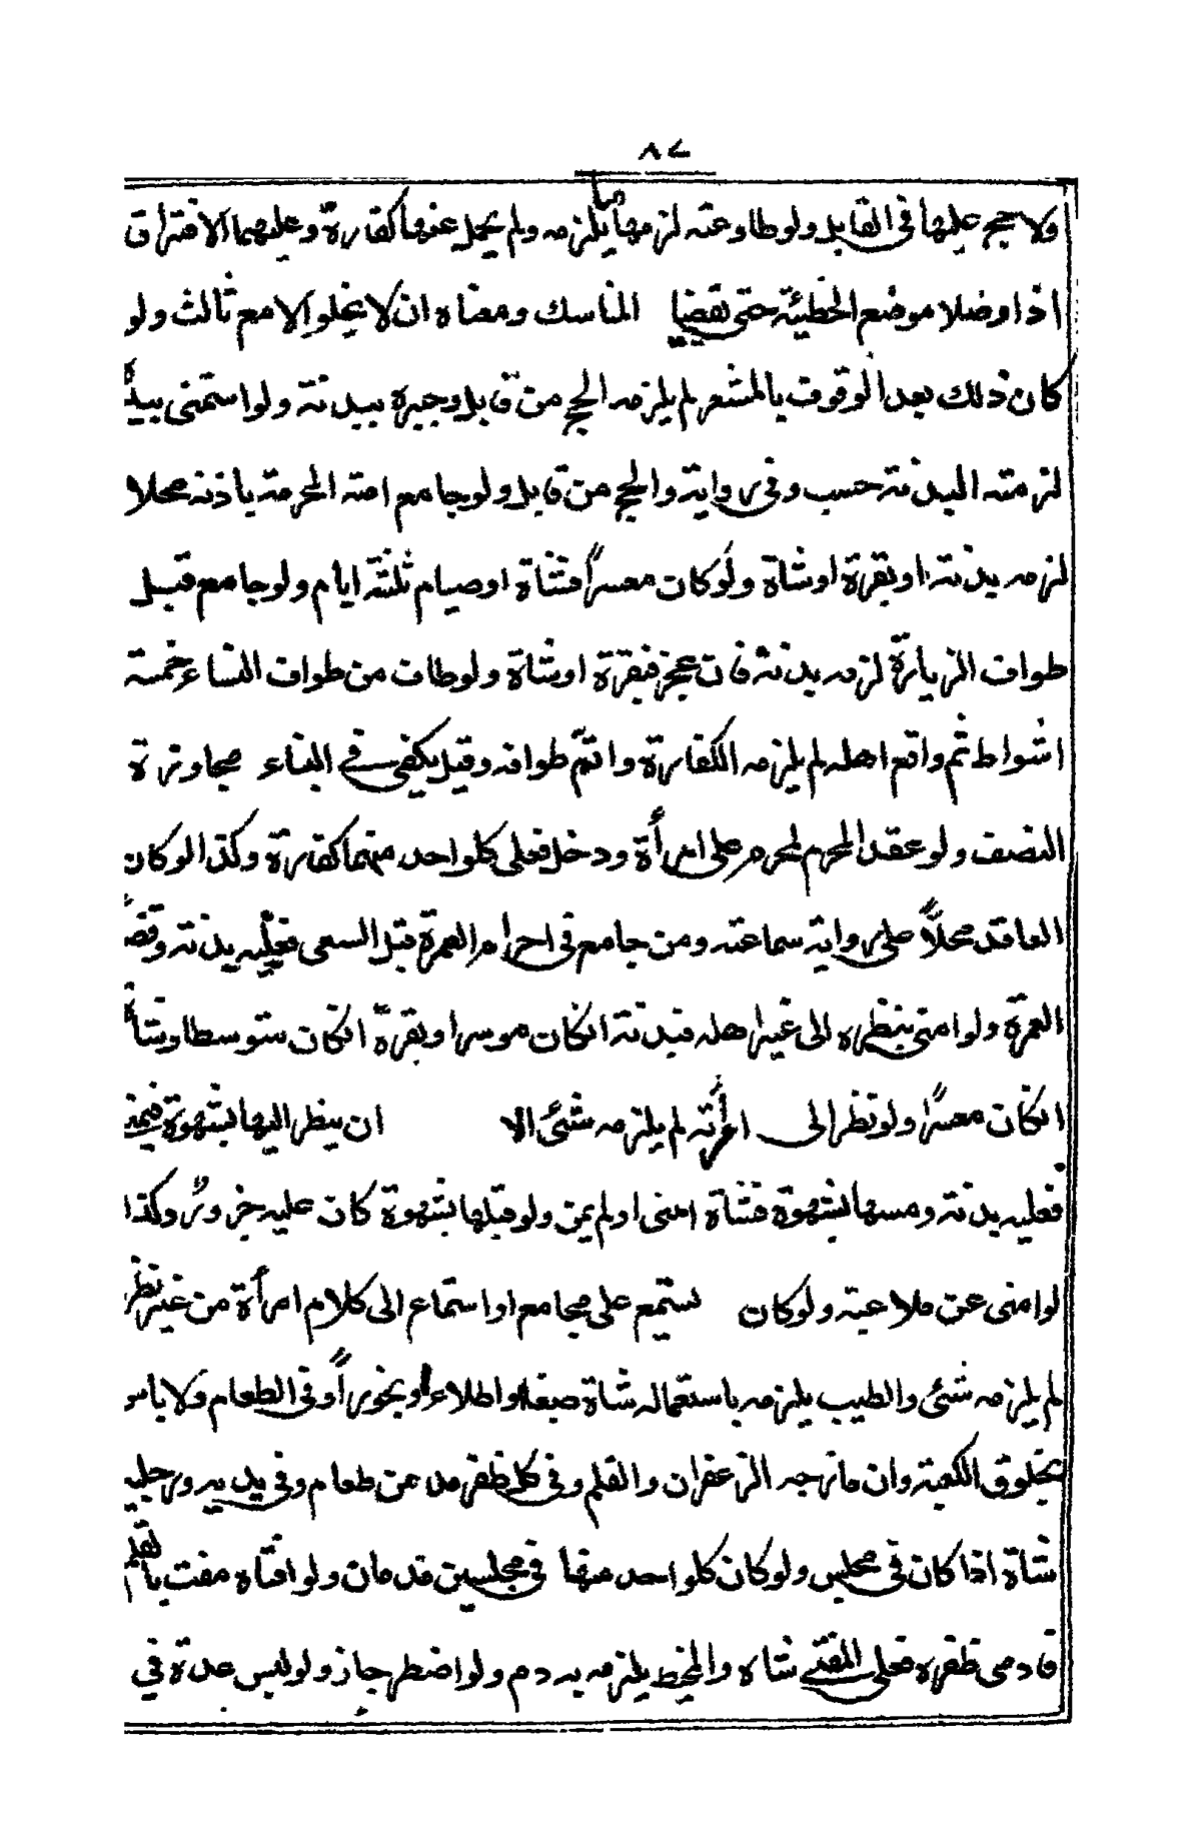 ٨٧
ولا حج عليها في القابل ولو طاوعته لزمها ما يلزمه ولم يحمل عنها كفارة وعليهما الافتراق
اذا وصلا موضع الخطيئة حتى يقضيا المناسك ومعناه ان لا يخلوا الا مع ثالث ولو
كان ذلك بعد الوقوف بالمشعر لم يلزمه الحج من قابل وجبره ببدنة ولو استمنى بيده
لزمته البدنة حسب وفي رواية والحج من قابل ولو جامع امته المحرمة باذنه محلا
لزمه بدنة او بقرة او شاة ولو كان معسراً فشاة او صيام ثلثة ايام ولو جامع قبل
طواف الزيارة لزمه بدنة فان عجز فبقرة او شاة ولو طاف من طواف النساء خمسة
اشواط ثم واقع اهله لم يلزمه الكفارة واتم طوافه وقيل يكفي في البناء مجاوزة
النصف ولو عقد المحرم لمحرم على امرأة ودخل فعلى كل واحد منهما كفارة وكذا لو كان
العاقد محلاً على رواية سماعته ومن جامع في احرام العمرة قبل السعي فعليه بدنة وقضاء
العمرة ولو امنى بنظره الى غير اهله فبدنة انكان موسرا وبقرة انكان متوسطا وشاة
انكان معسراً ولو نظر الى امرأته لم يلزمه شئ الا ان ينظر اليها بشهوة فيمنى
فعليه بدنة ومسها بشهوة فشاة امنى او لم يمن ولو قبلها بشهوة كان عليه جزور وكذا
لو امنى عن ملاعبة ولو كان تستمع على مجامع او استماع الى كلام امرأة من غير نظر
لم يلزمه شئ والطيب يلزمه باستعماله شاة صبغا واطلاء او بخوراً او في الطعام ولا باس
بخلوق الكعبة وان مازجه الزعفران والقلم وفي كل ظفر مد من طعام وفي يديه ورجليه
شاة اذا كان في مجلس ولو كان كل واحد منها في مجلسين فدمان ولو افتاه مفت بالقلم
فادمى ظفره فعلى المفتي شاه والمخيط يلزمه به دم ولو اضطر جاز ولو لبس عدة في